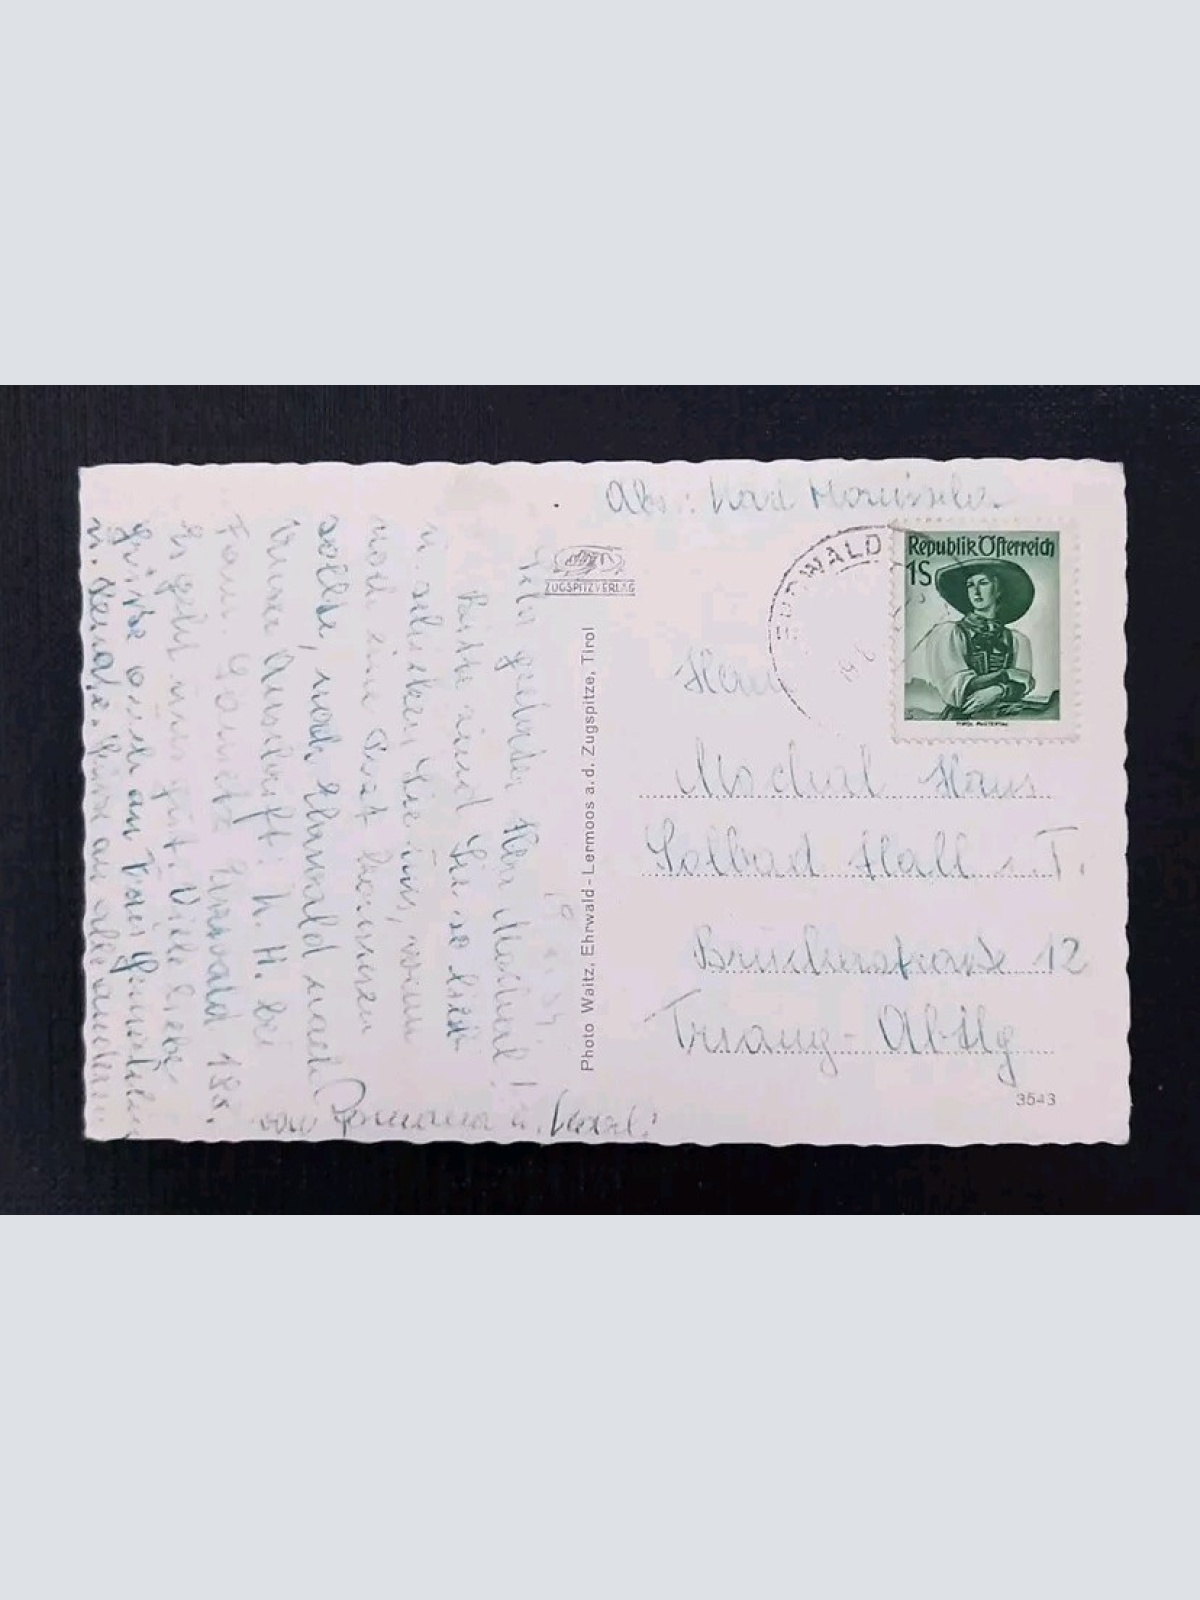 Abs.: Karl
EHRWALD
Republik Österreich
1S
TIROL, PUSTERTAL
ZUGSPITZVERLAG
Photo Waitz, Ehrwald-Lermoos a.d. Zugspitze, Tirol
Herrn
Haus
Solbad Hall i. T.
12
Abtlg
3543
Sehr geehrter Herr
Bitte sind Sie so lieb
u. schicken Sie uns, wenn
noch eine Post kommen
sollte, nach Ehrwald nach
Unsere Anschrift: K. H. bei
Fam. Ehrwald 185.
Es geht uns gut. Viele liebe
Grüße auch an
u. an alle anderen
von Romana u. Karl.